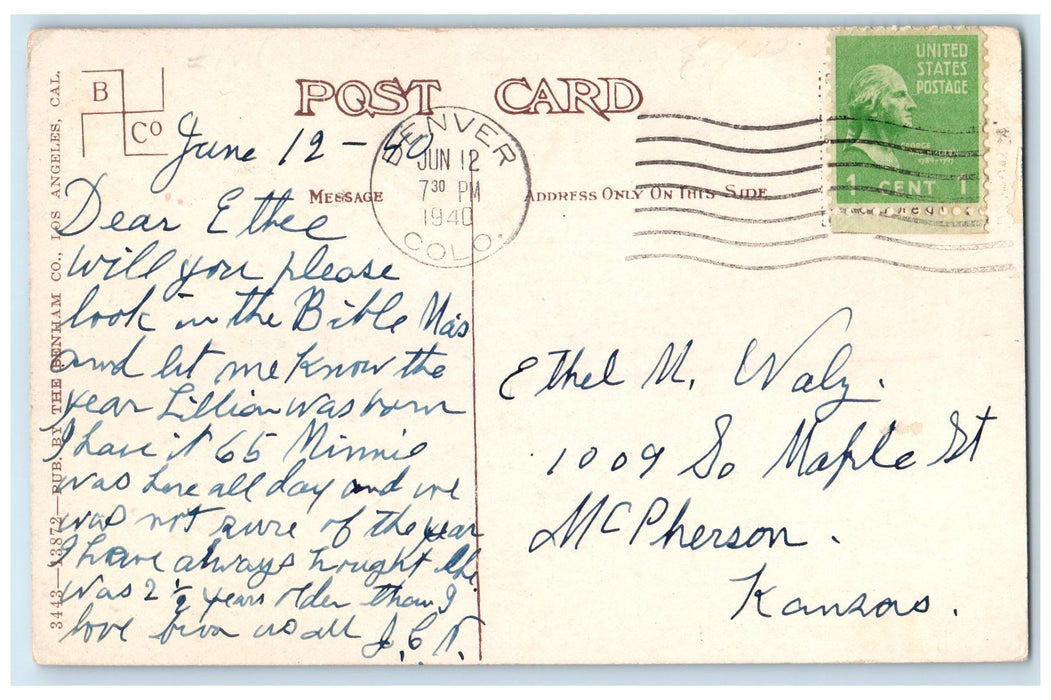 B
Co
POST CARD
UNITED
STATES
POSTAGE
1 CENT 1
DENVER
JUN 12
730 PM
1940
COLO.
MESSAGE
ADDRESS ONLY ON THIS SIDE
3443—13872—PUB. BY THE BENHAM CO., LOS ANGELES, CAL.
June 12 - 40
Dear Ethel
Will you please
look in the Bible
and let me know the
year Lillian was born
I have it 65 Minnie
was here all day and we
was not sure of the year
I have always thought she
was 2 1/2 years older than I
love us all
Ethel M.
1009 So Maple St
McPherson.
Kansas.